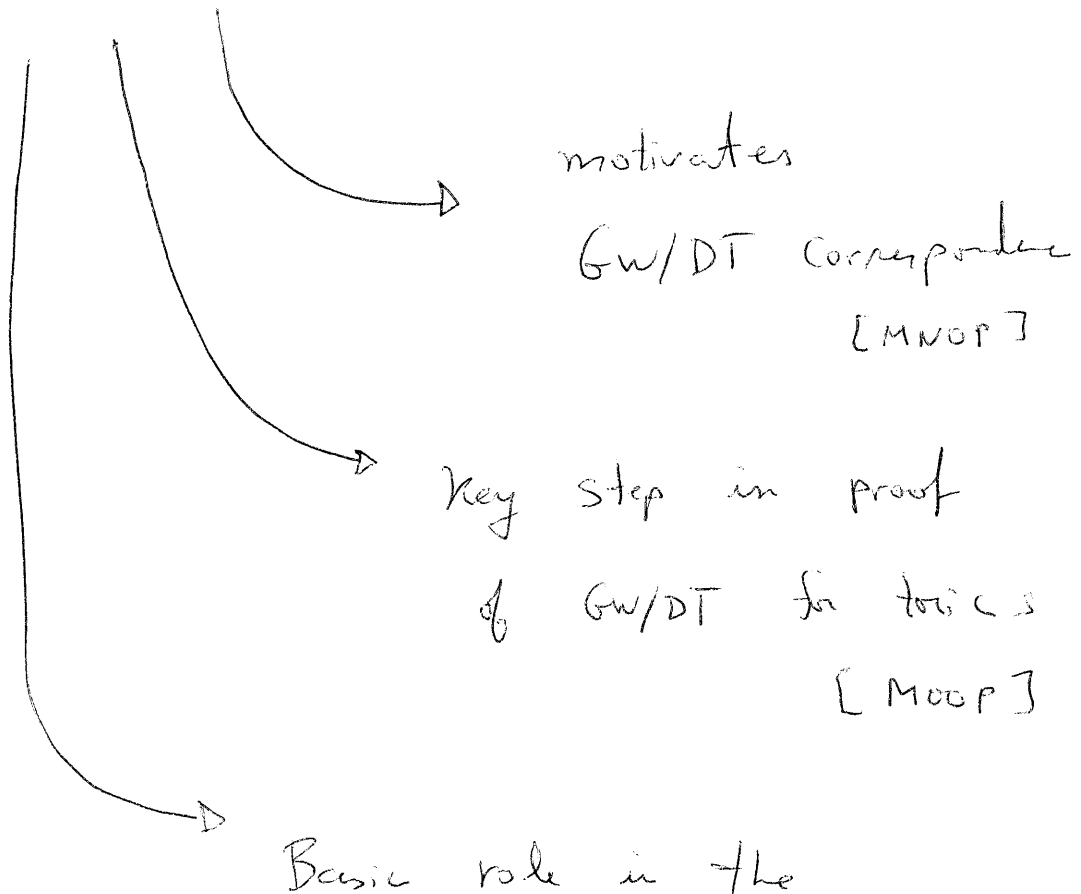 motivates
GW/DT Correspondence
[MNOP]
Key step in proof
of GW/DT for torics
[MOOP]
Basic role in the